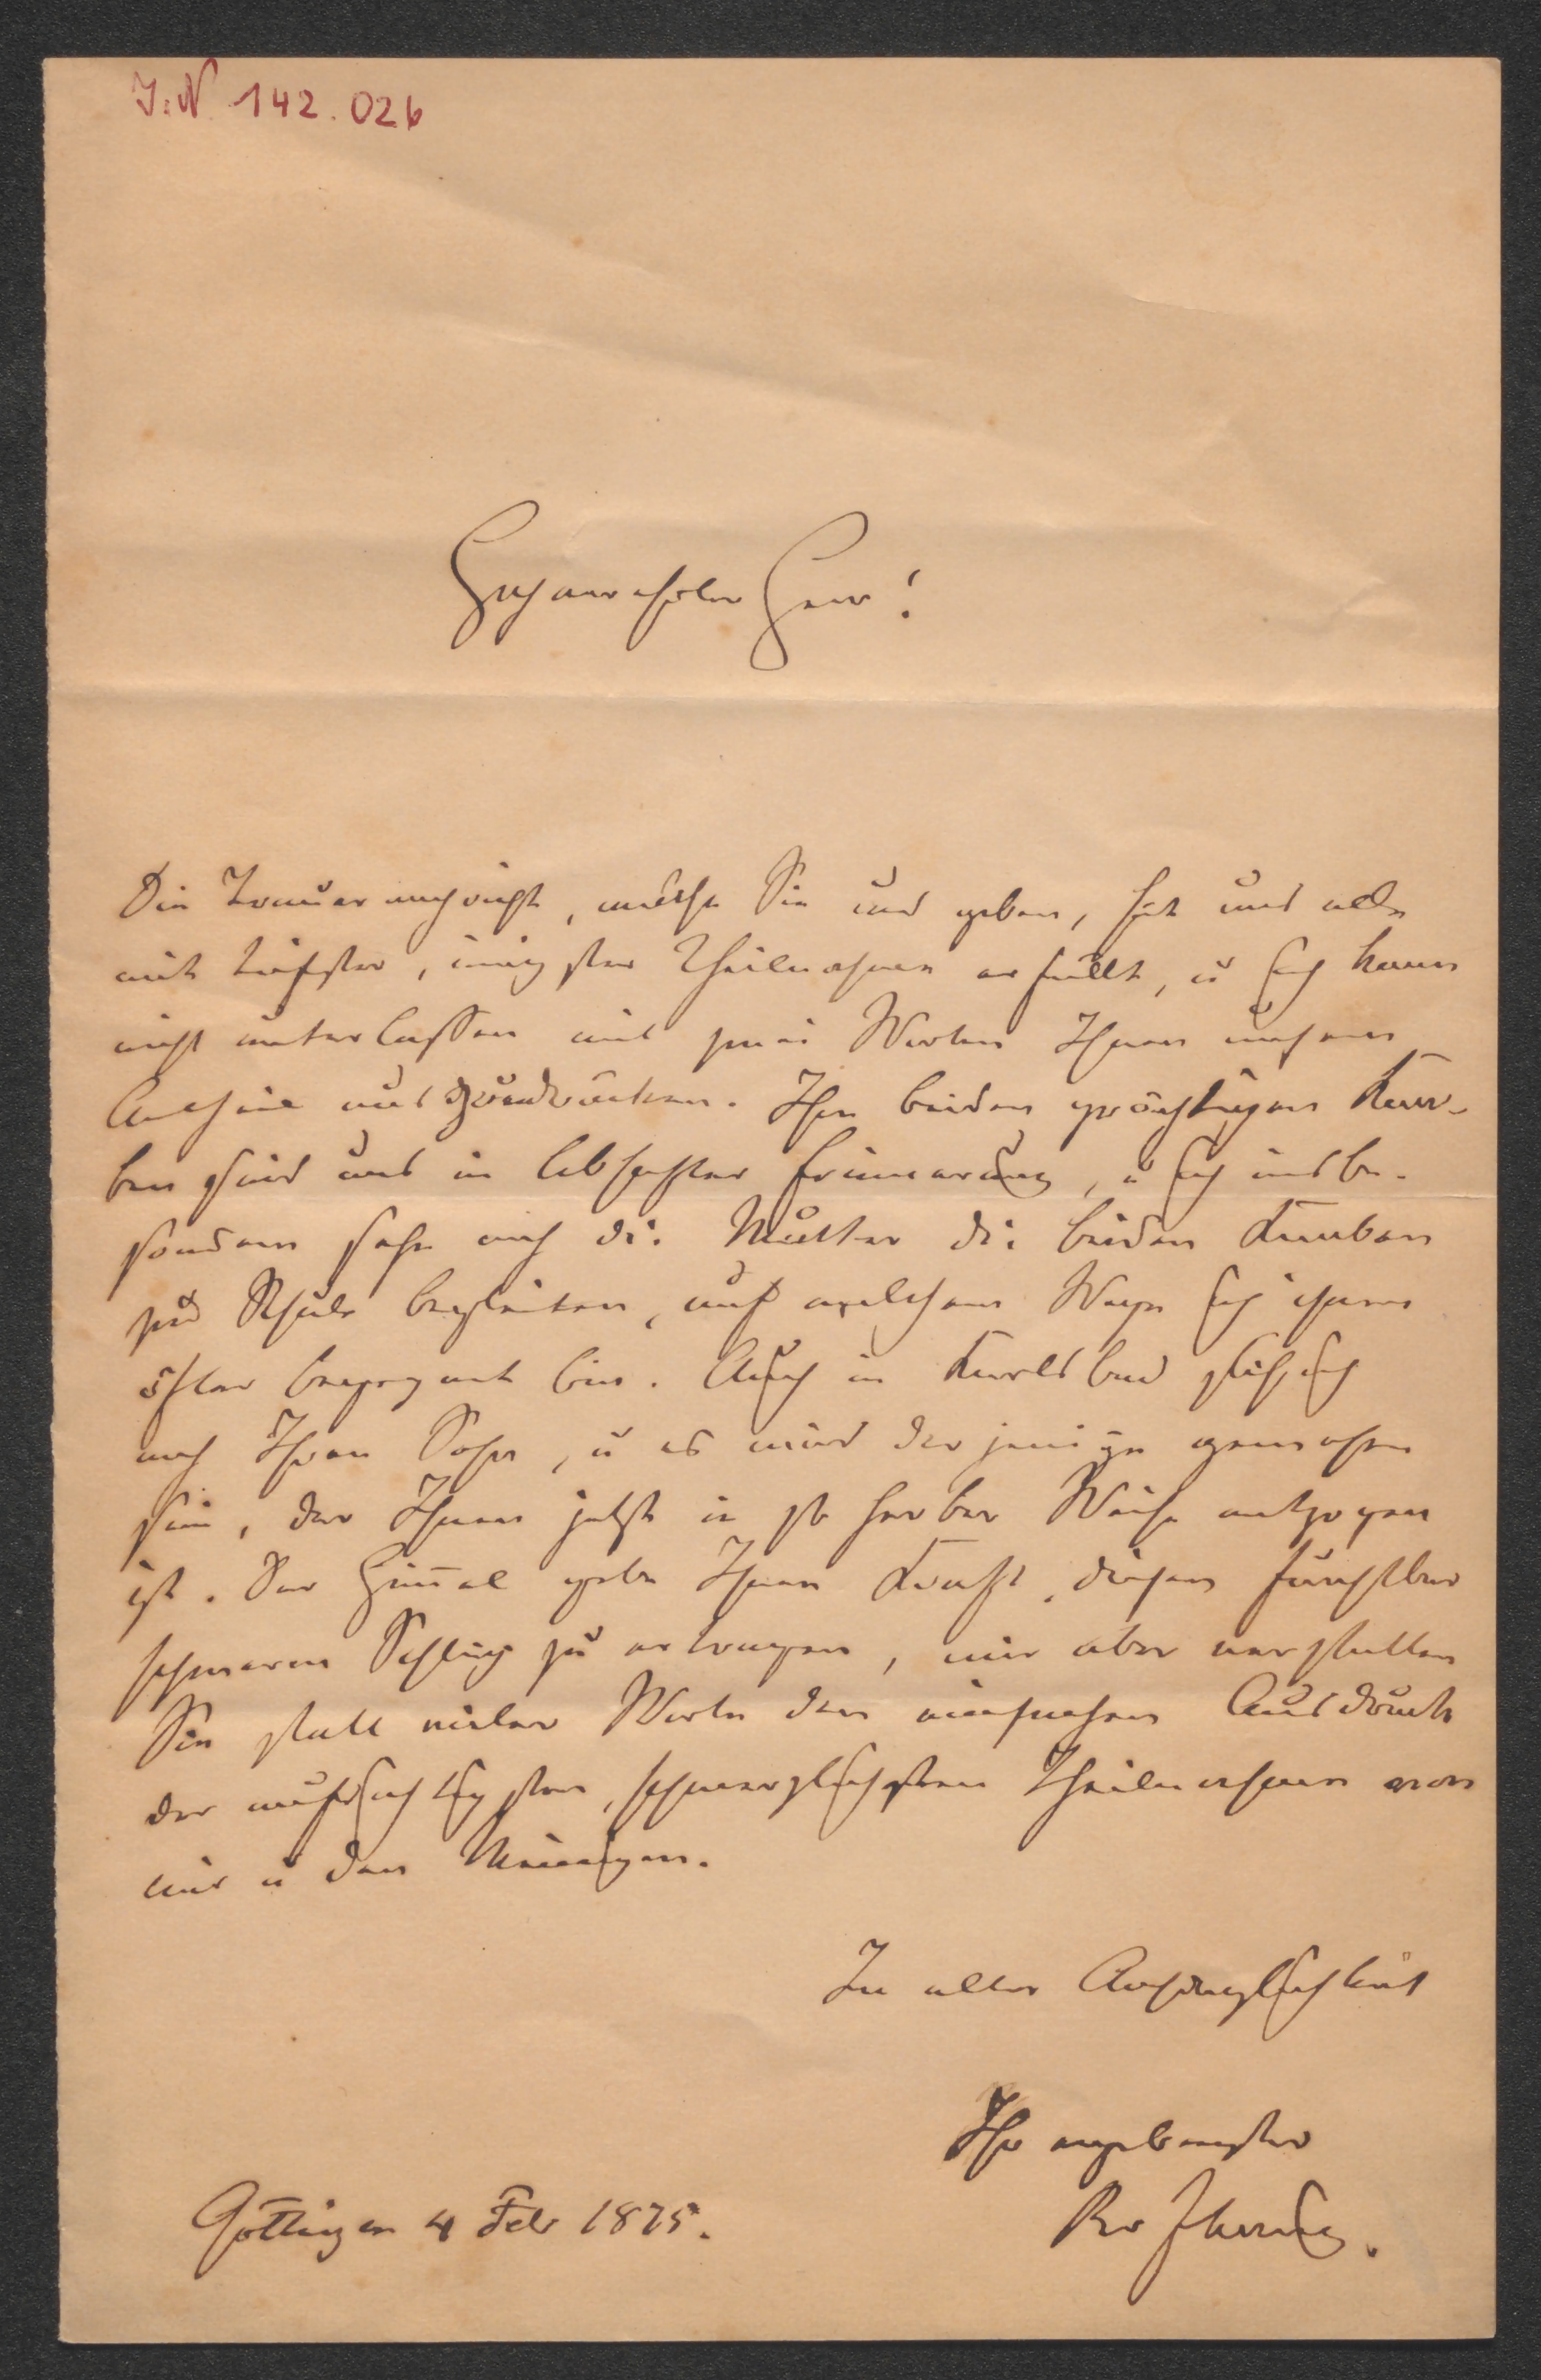 I. N. 142.026
Hochverehrter Herr!
Die Trauernachricht, welche Sie uns geben, hat uns alle
mit tiefster, innigster Theilnahme erfüllt, u ich kann
nicht unterlassen mit zwei Worten Ihnen unsern
Antheil auszudrücken. Ihre beiden prächtigen Kna-
ben sind uns in lebhafter Erinnerung, u ich insbe-
sondere sehe noch die Mutter die beiden Knaben
zur Schule begleiten, auf welchem Wege ich ihnen
öfter begegnet bin. Auch in Karlsbad sah ich
noch Ihren Sohn, u es wird derjenige gewesen
sein, der Ihnen jetzt in so herber Weise entzogen
ist. Der Himmel gebe Ihnen Kraft, diesen furchtbar
schweren Schlag zu ertragen, mir aber verstatten
Sie statt vieler Worte den einfachen Ausdruck
der aufrichtigsten, schmerzlichsten Theilnahme von
mir u den Meinigen.
In alter Anhänglichkeit
Ihr ergebenster
Göttingen 4 Feb 1875.
Rv Jhering.